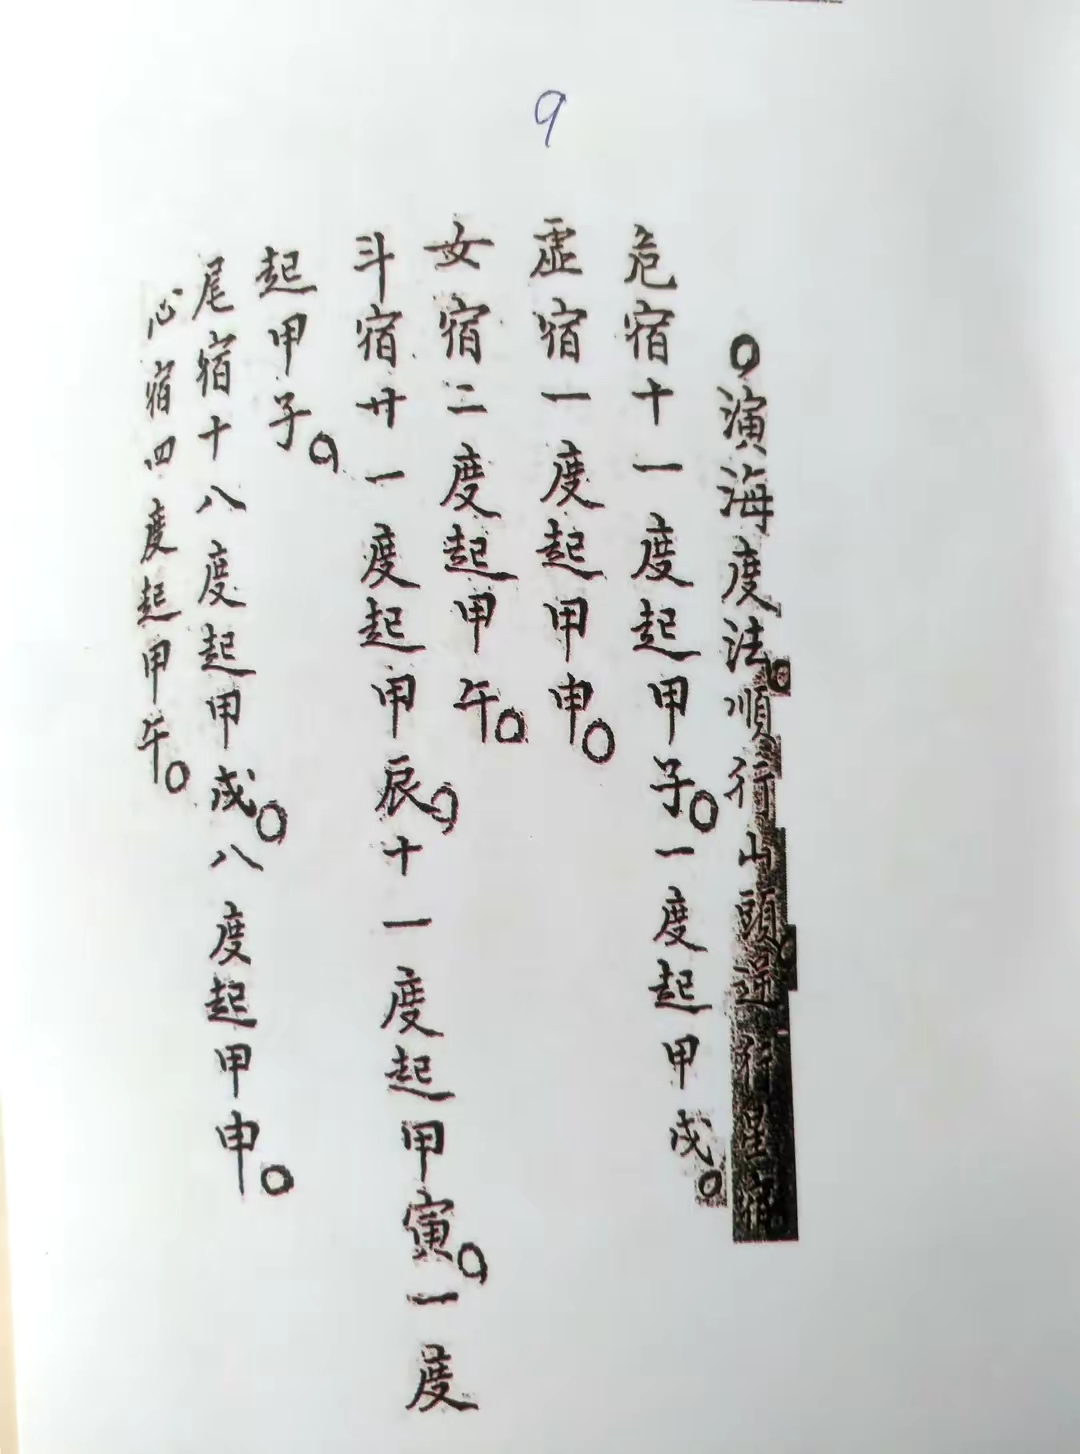 9
○演海度法○順行山頭○逆行星宿○
危宿十一度起甲子○一度起甲戌○
虛宿一度起甲申○
女宿二度起甲午○
斗宿廿一度起甲辰○十一度起甲寅○一度
起甲子○
尾宿十八度起甲戌○八度起甲申○
心宿四度起甲午○